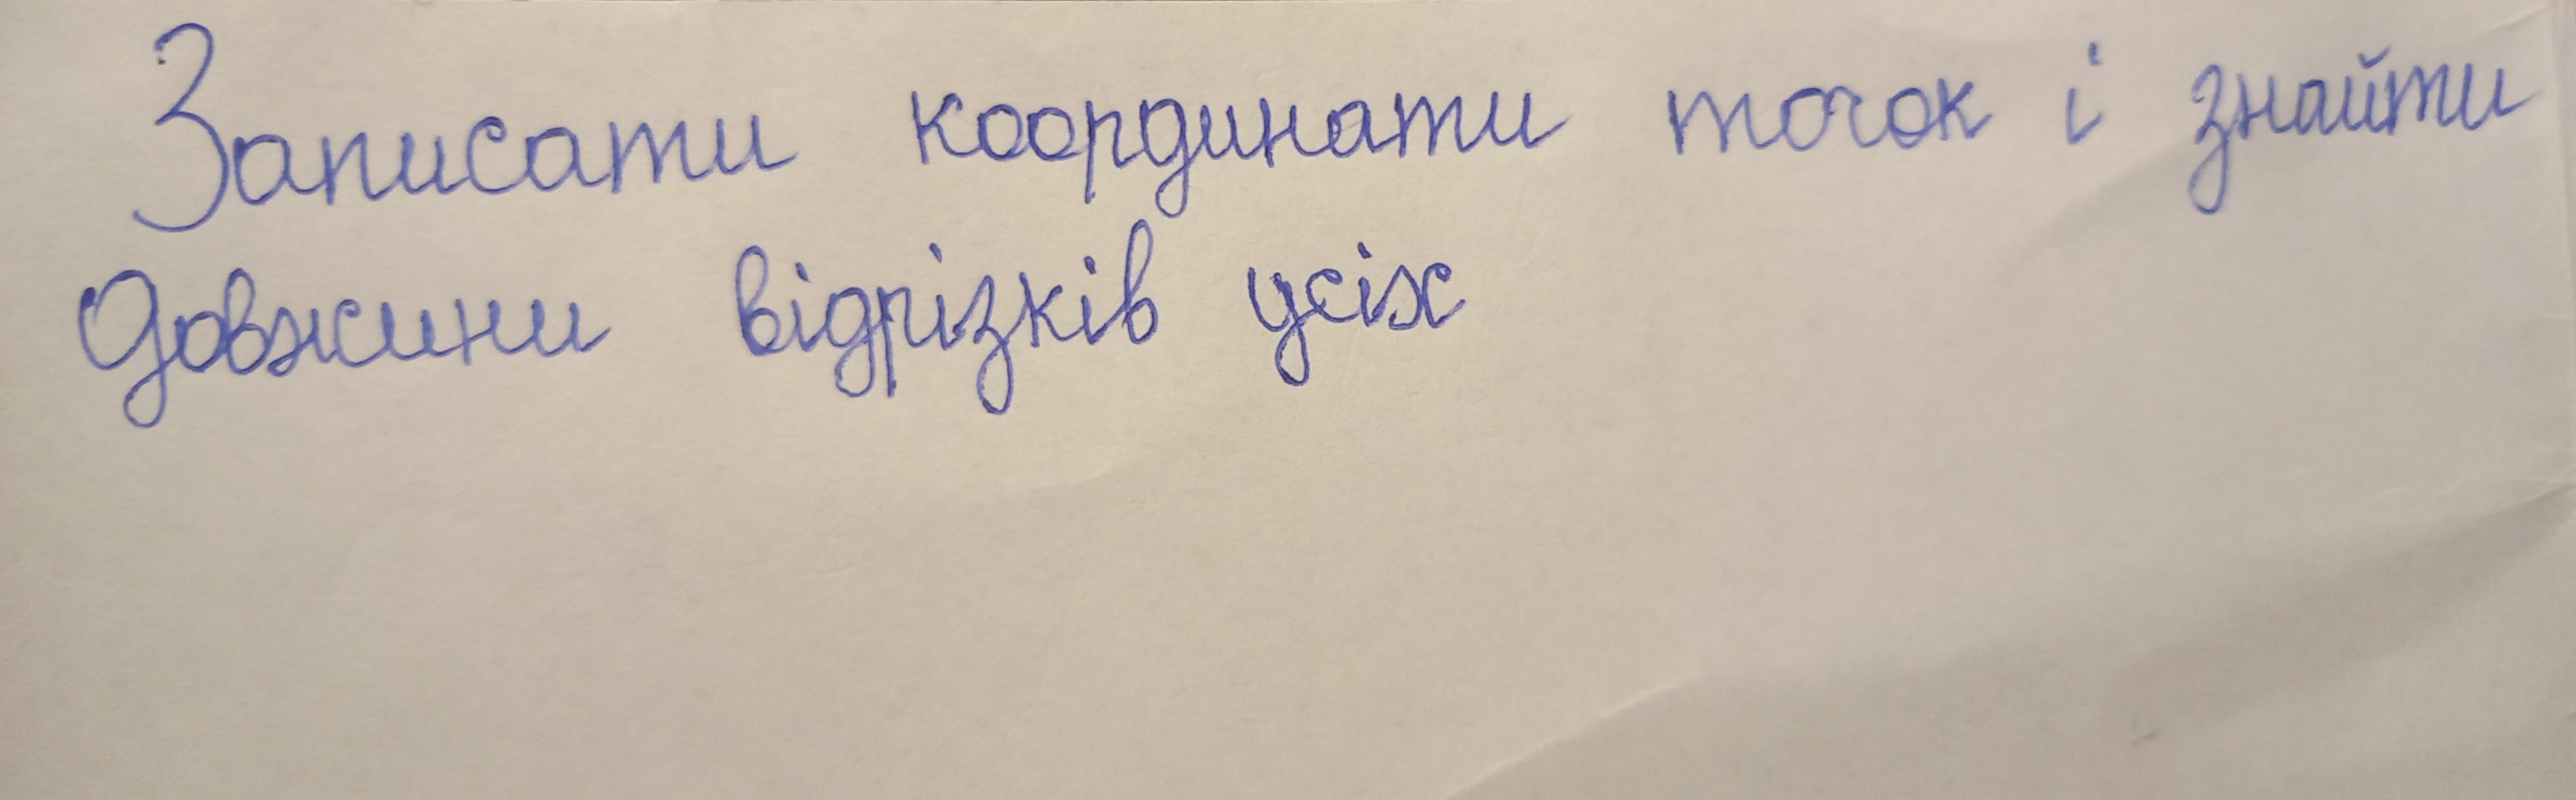 Записати координати точок і знайти
довжини відрізків усіх